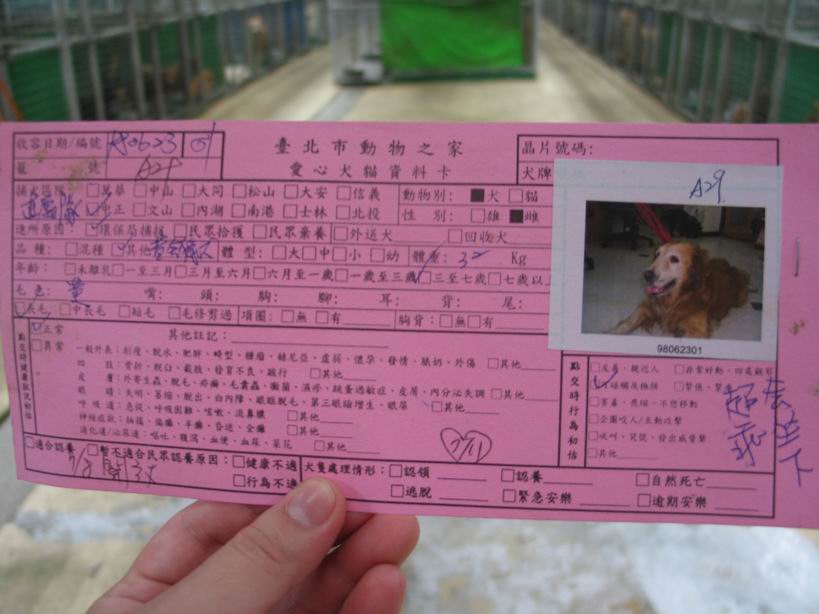 臺北市動物之家
愛心犬貓資料卡
收容日期/編號 980623 01
籠號 A29
晶片號碼:
犬牌
A29
98062301
捕犬區隊 □萬華 □中山 □大同 □松山 □大安 □信義
動物別: ■犬 □貓
中正 □文山 □內湖 □南港 □士林 □北投
性別: □雄 ■雌
進所原因 環保局捕捉 □民眾拾獲 □民眾棄養 □外送犬 □回收犬
品種: □混種 其他 黃金獵犬 體型: □大 □中 □小 □幼 體重: Kg
年齡: □未離乳 □一至三月 □三月至六月 □六月至一歲 □一歲至三歲 □三至七歲 □七歲以
毛色: 黃 嘴: 頭: 胸: 腳: 耳: 背: 尾:
長毛 □中長毛 □短毛 □毛修剪過 項圈: □無 □有 胸背: □無 □有
點交時健康狀況初估
正常 其他註記:
□異常 一般外表: 削瘦、脫水、肥胖、畸型、腫瘤、赫尼亞、虛弱、懷孕、發情、脹奶、外傷 □其他
四肢: 骨折、脫臼、截肢、發育不良、跛行 □其他
皮膚: 外寄生蟲、脫毛、疥癬、毛囊蟲、黴菌、濕疹、跳蚤過敏症、皮膚、內分泌失調 □其他
眼睛: 失明、萎縮、脫出、白內障、眼瞼脫毛、第三眼瞼增生、眼屎 □其他
呼吸道: 急促、呼吸困難、咳嗽、流鼻膿 □其他
神經症狀: 抽搐、偏癱、半癱、昏迷、全癱 □其他
消化道/泌尿道: 嘔吐、腹瀉、血便、血尿、菜花 □其他
7/11
點交時行為初估
□友善、親近人 □非常好動、四處觀察
□害羞、畏縮、不想移動
□企圖咬人/主動攻擊
□吠叫、咒號、發出威脅聲
□其他
超乖
會坐下
□適合認養 □暫不適合民眾認養原因: □健康不適
□行為不適
犬隻處理情形: □認領 □認養 □自然死亡
□逃脫 □緊急安樂 □逾期安樂